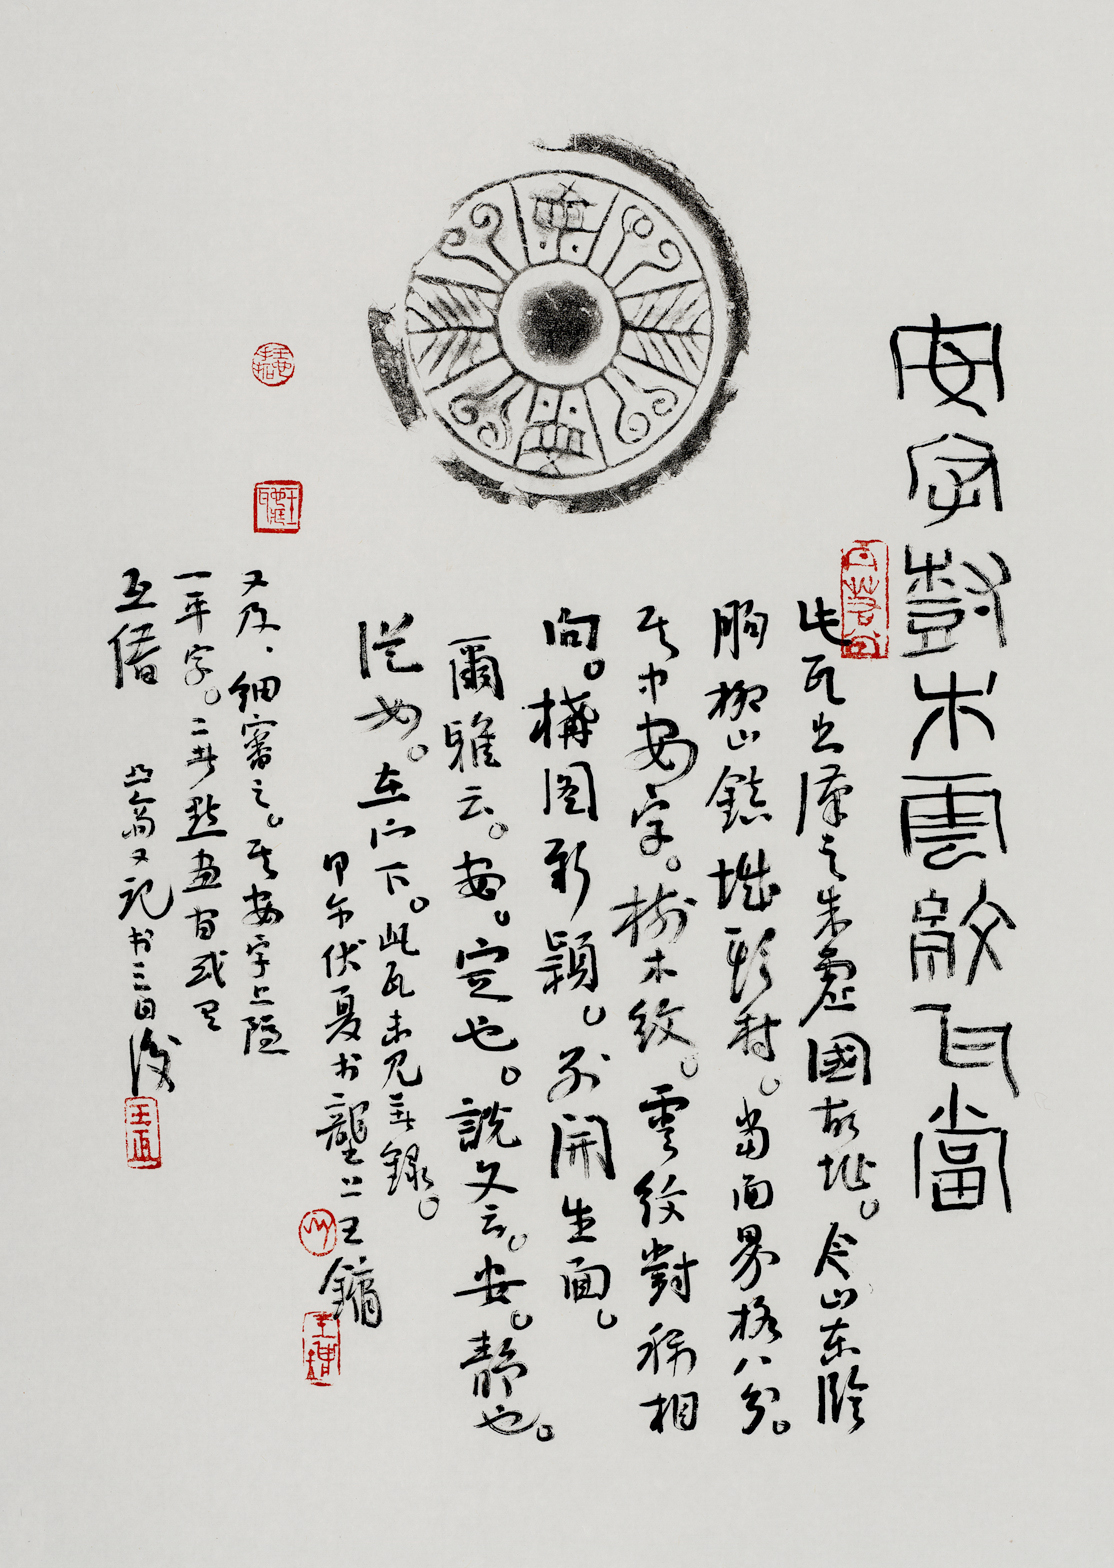 安字對木雲紋瓦當
此瓦出漢之朱虛國故址。今山東臨
朐柳山鎮城頭村。當面界格八分。
其中安字。樹木紋。雲紋對稱相
向。構圖新穎。別開生面。
爾雅云。安。定也。說文云。安。靜也。
從女。在宀下。此瓦未見著錄。
甲午伏夏 王鏞
又及、細審之。其安字上隱
一平字。二者點畫皆或
互借
又記